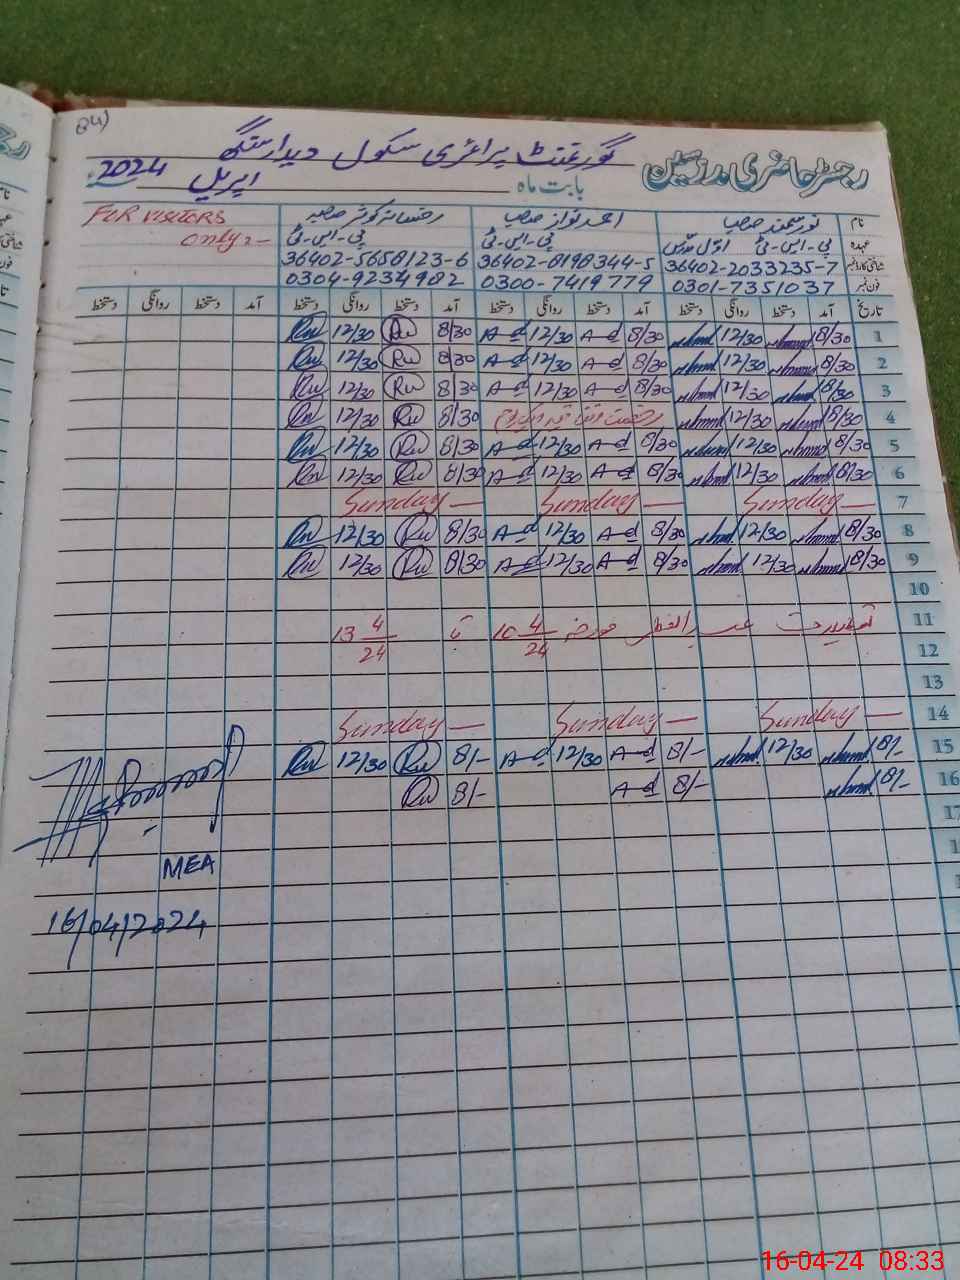 84)
رجسٹر حاضری مدرسین گورنمنٹ پرائمری سکول دیدار سنگھ
بابت ماہ اپریل 2024
نام نور سمند صاحب احمد نواز صاحب رخسانہ کوثر صاحبہ FOR VISITORS
عہدہ پی-ایس-ٹی اول مدرس پی-ایس-ٹی پی-ایس-ٹی ONLY:-
شناختی کارڈ نمبر 36402-2033235-7 36402-8198344-5 36402-5658123-6
فون نمبر 0301-7351037 0300-7419779 0304-9234982
تاریخ آمد دستخط روانگی دستخط آمد دستخط روانگی دستخط آمد دستخط روانگی دستخط آمد دستخط روانگی دستخط
1 8/30 12/30 8/30 A-d 12/30 A-d 8/30 Ru 12/30 Ru
2 8/30 12/30 8/30 A-d 12/30 A-d 8/30 Ru 12/30 Ru
3 8/30 12/30 8/30 A-d 12/30 A-d 8/30 Ru 12/30 Ru
4 8/30 12/30 رخصت 8/30 Ru 12/30 Ru
5 8/30 12/30 8/30 A-d 12/30 A-d 8/30 Ru 12/30 Ru
6 8/30 12/30 8/30 A-d 12/30 A-d 8/30 Ru 12/30 Ru
7 Sunday — Sunday — Sunday —
8 8/30 12/30 8/30 A-d 12/30 A-d 8/30 Ru 12/30 Ru
9 8/30 12/30 8/30 A-d 12/30 A-d 8/30 Ru 12/30 Ru
10
11 تعطیلات عید الفطر مورخہ 10 4/24 تا 13 4/24
12
13
14 Sunday — Sunday — Sunday —
15 8/- 12/30 8/- A-d 12/30 A-d 8/- Ru 12/30 Ru
16 8/- 8/- A-d 8/- Ru
17
MEA
16/04/2024
16-04-24 08:33